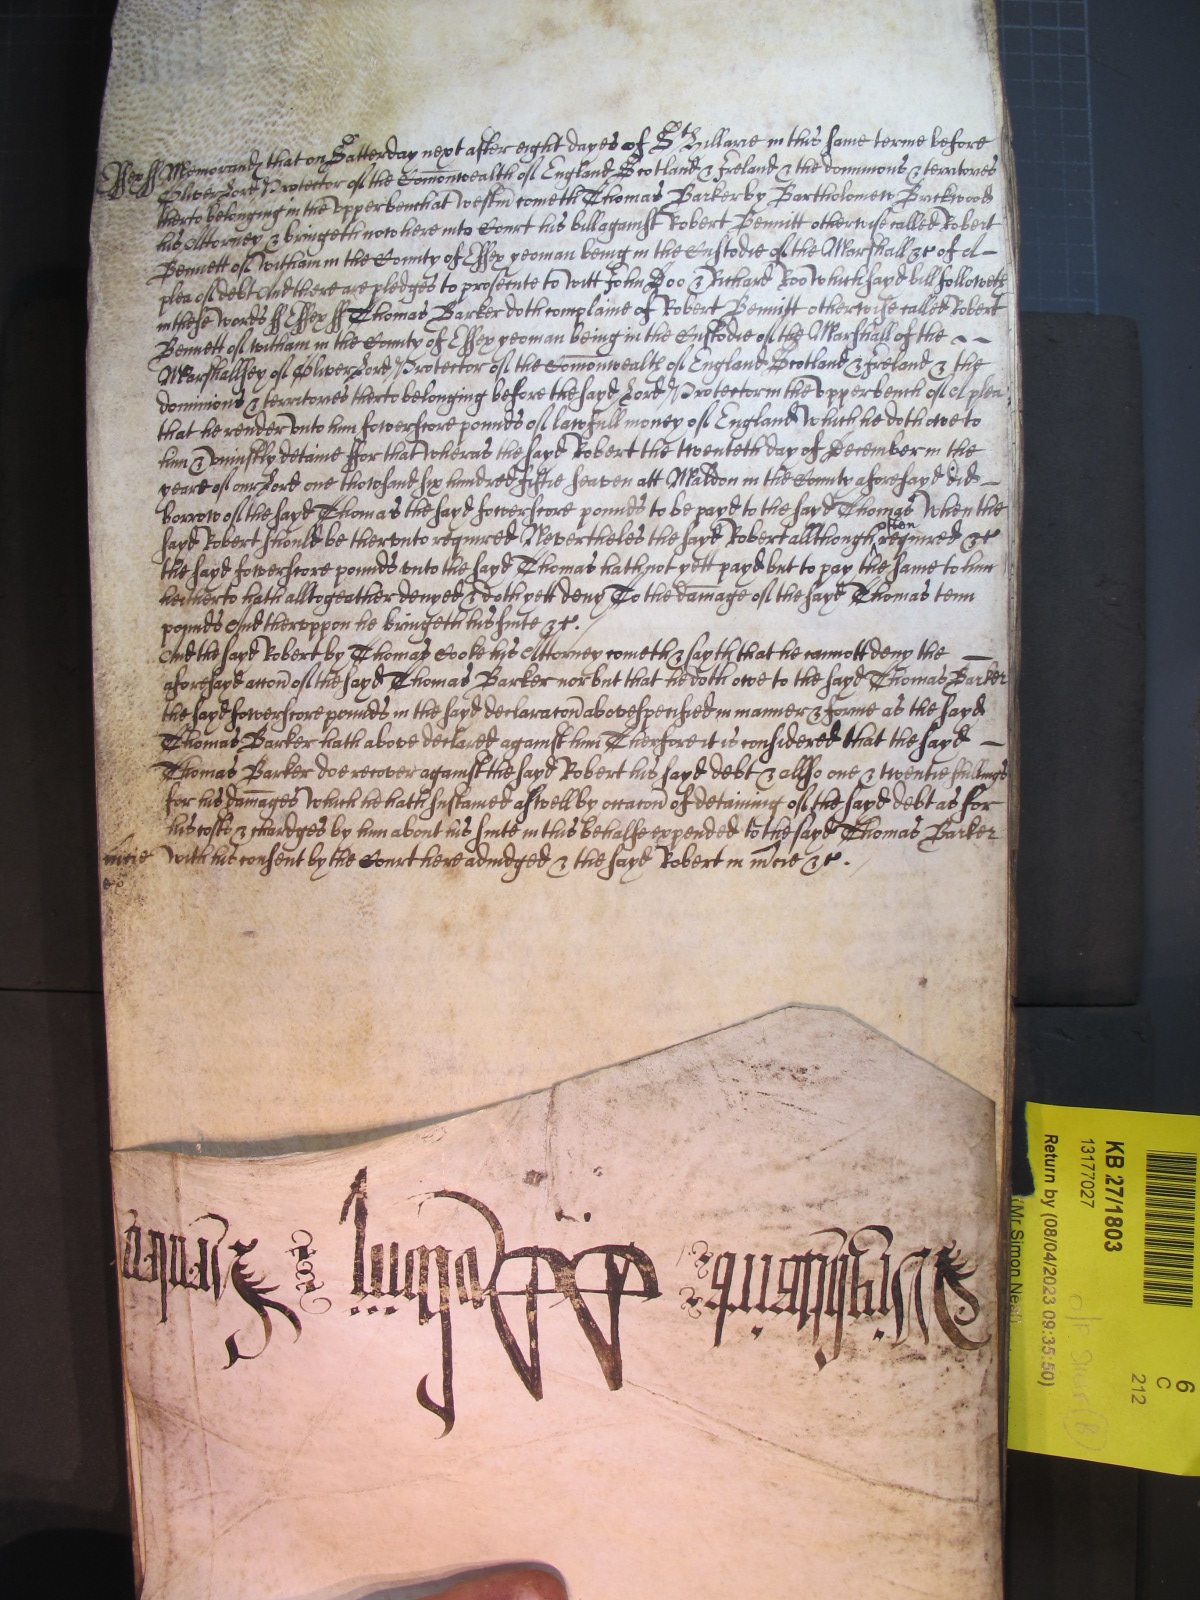 Essex ss Memorand that on Satterday next after eight dayes of St Hillarie in this same terme before
Oliver Lord Protector of the Comonwealth of England Scotland & Ireland & the dominions & territories
therto belonging in the upper bench at Westm cometh Thomas Barker by Bartholomew Brickwood
his Attorney & bringeth now here into Court his bill against Robert Bennitt otherwise called Robert
Bennett of Witham in the County of Essex yeoman being in the Custodie of the Marshall &c of a
plea of debt And there are pledges to prosecute to witt John Doo & Richard Roo which sayd bill followeth
in these words ss Essex ss Thomas Barker doth complaine of Robert Bennitt otherwise called Robert
Bennett of Witham in the County of Essex yeoman being in the Custodie of the Marshall of the
Marshallsey of Oliver Lord Protector of the Comonwealth of England Scotland & Ireland & the
dominions & territories therto belonging before the sayd Lord Protector in the upper bench of A plea
that he render unto him fowerscore pounds of lawfull money of England which he doth owe to
him & uniustly detaine ffor that wheras the sayd Robert the twenteth day of December in the
yeare of our Lord one thowsand six hundred fiftie seaven att Maldon in the County aforesayd did
borrow of the sayd Thomas the sayd fowerscore pounds to be payd to the sayd Thomas when the
sayd Robert should be therunto required Nevertheles the sayd Robert allthough often required &c
the sayd fowerscore pounds unto the sayd Thomas hath not yett payd but to pay the same to him
heitherto hath alltogeather denyed & doth yett deny To the damage of the sayd Thomas tenn
pounds And theruppon he bringeth his suite &c.
And the sayd Robert by Thomas Cooke his Attorney cometh & sayth that he cannott deny the
aforesayd accon of the sayd Thomas Barker nor but that he doth owe to the sayd Thomas Barker
the sayd fowerscore pounds in the sayd declaracon above specified in manner & forme as the sayd
Thomas Barker hath above declared against him Therfore it is considered that the sayd
Thomas Barker doe recover against the sayd Robert his sayd debt & allso one & twentie shillings
for his damages which he hath sustained aswell by occacon of detaining of the sayd debt as for
his costs & chardges by him about his suite in this behalfe expended to the sayd Thomas Barker
mcie with his consent by the Court here adiudged & the sayd Robert in mcie &c.
KB 27/1803
13177027
Return by (08/04/2023 09:35:50)
6
C
212